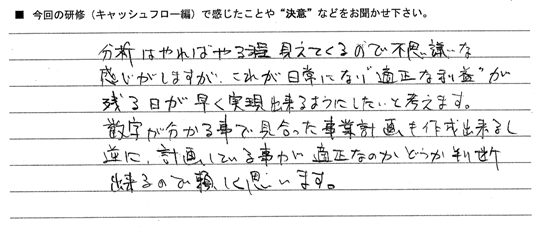 ■ 今回の研修（キャッシュフロー編）で感じたことや“決意”などをお聞かせ下さい。
分析はやればやる程 見えてくるので不思議な
感じがしますが、これが日常になり“適正な利益”が
残る日が早く実現出来るようにしたいと考えます。
数字が分かる事で見合った事業計画も作成出来るし
逆に、計画している事が適正なのかどうか判断
出来るので頼しく思います。